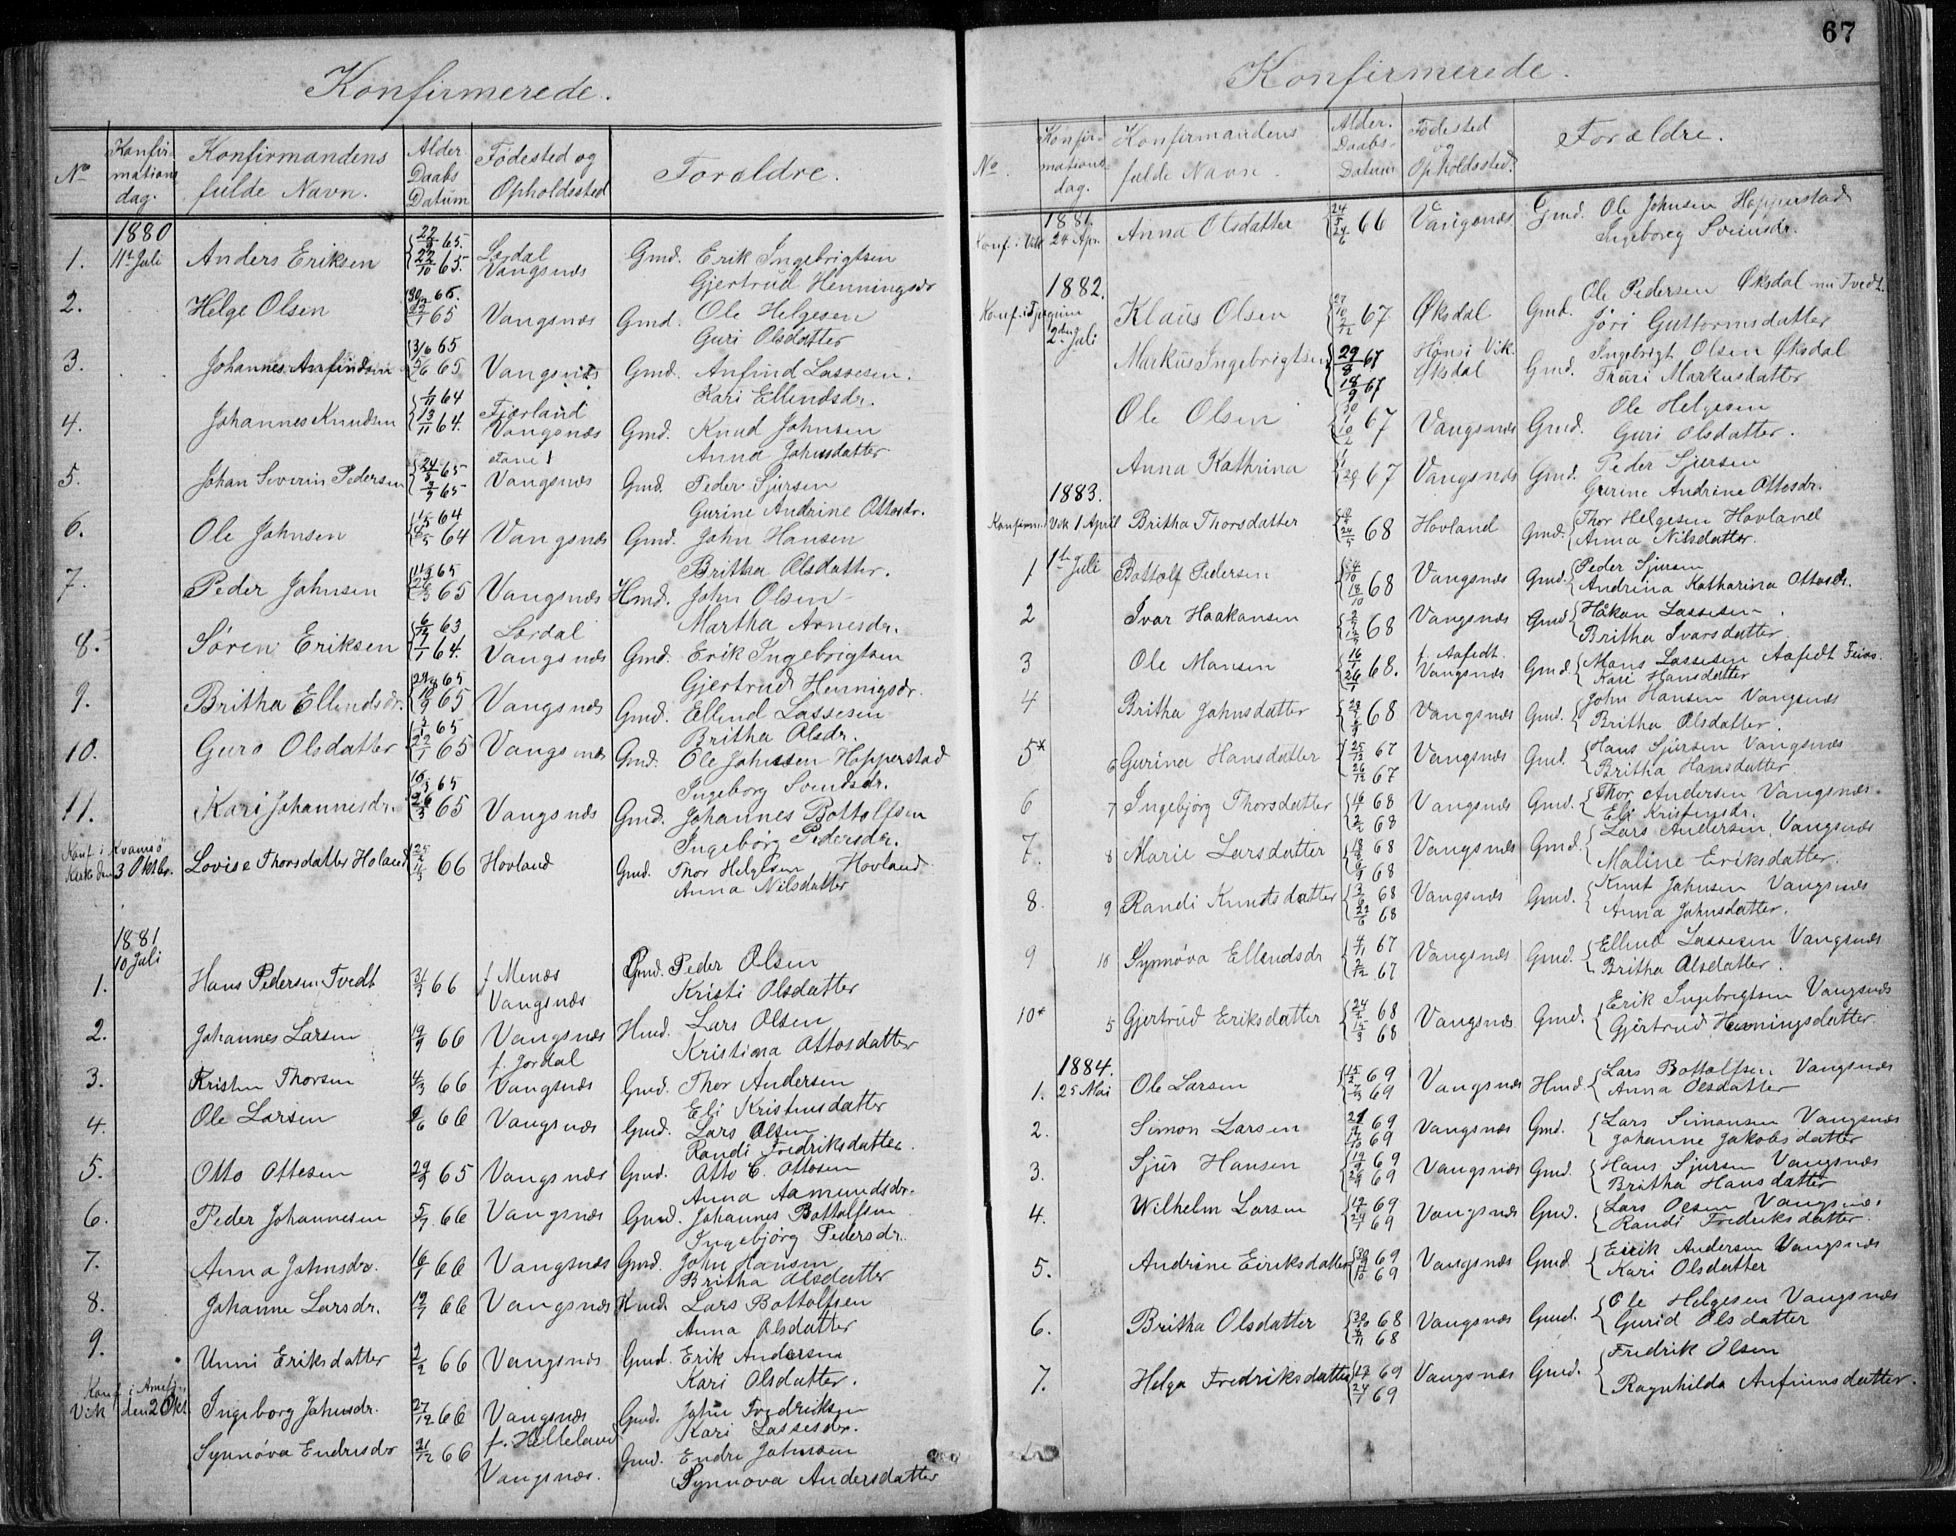 67
Konfirmerede.
No Konfirmations dag. Konfirmandens fulde Navn. Alder Daabs Datum Fødested og Opholdssted Forældre.
1880
1. 11te Juli Anders Eriksen 65. 22/10 65. Lærdal Vangsnæs Gmd. Erik Ingebrigtsen
Gjertrud Henningsdr
2. Helge Olsen 65 Vangsnæs Gmd. Ole Helgesen
Guri Olsdatter
3. Johannes Anfindsen 65 65 Vangsnæs Gmd. Anfind Lassesen.
Kari Ellendsdr.
4. Johannes Knudsen 64 13/11 64. Fjærland Vangsnæs Gmd. Knud Johnsen
Anna Johnsdatter
5. Johan Severin Pedersen 65 65 Vangsnæs Gmd. Peder Sjursen
Gurine Andrine Ottosdr.
6. Ole Johnsen 64 64 Vangsnæs Gmd. John Hansen
Britha Olsdatter.
7 Peder Johnsen 65 65 Vangsnæs Hmd. John Olsen
Martha Arnesdr.
8. Søren Eriksen 63 64. Lærdal Vangsnæs Gmd. Erik Ingebrigtsen
Gjertrud Hennigsdr.
9. Britha Ellendsdr. 65 65 Vangsnæs Gmd. Ellend Lassesen
Britha Olsdr.
10. Guro Olsdatter 65 65 Vangsnæs Gmd. Ole Johnsen Hopperstad
Ingeborg Svendsdr.
11. Kari Johannesdr. 65 65 Vangsnæs Gmd. Johannes Bottolfsen
Ingeborg Pedersdr.
Konf. i Kvamsø Kirke den 3 Oktbr. Lovise Thorsdatter Hovland 66 Hovland Gmd. Thor Helgesen Hovland
Anna Nilsdatter
1881
10 Juli
1. Hans Pedersen Tvedt 66 f Menæs Vangsnæs Gmd. Peder Olsen
Kristi Olsdatter
2. Johannes Larsen 66 Vangsnæs Hmd. Lars Olsen
Kristiana Ottosdatter
3. Kristen Thorsen 4/3 66 f. Jordal Vangsnæs Gmd. Thor Andersen
Eli Kristensdatter
4. Ole Larsen 66 Vangsnæs Gmd. Lars Olsen
Randi Fredriksdatter.
5. Otto Ottesen 65 Vangsnæs Gmd. Otto C. Ottosen
Anna Aamundsdr.
6. Peder Johannesen 5/7 66 Vangsnæs Gmd. Johannes Bottolfsen
Ingebjörg Pedersdr.
7. Anna Johnsdr. 66 Vangsnæs Gmd. John Hansen
Britha Olsdatter
8. Johanne Larsdr. 66 Vangsnæs Hmd. Lars Bottolfsen
Anna Olsdatter
9. Unni Eriksdatter 2/2 66 Vangsnæs Gmd. Erik Andersen
Kari Olsdatter.
Konf. i Vik den 2 Okt. Ingeborg Johnsdr. 27/12 66 Vangsnæs Gmd. John Fredriksen
Kari Lassesdr.
Synnöva Endresdr 21/12 66 f. Helleland Vangsnæs. Gmd. Endre Johnsen
Synnøva Andersdatter
Konfirmerede.
No. Konfirmations dag. Konfirmandens fulde Navn. Alder. Daabs-Datum Fødested og Opholdssted. Forældre.
1881.
Konf. i Vik 24 Apr. Anna Olsdatter 24/5 24/6 66 Vangsnæs Gmd. Ole Johnsen Hopperstad
Ingeborg Sveinsdr.
1882.
Konf. i Tjugum 2den Juli Klaus Olsen 67 Øksdal Gmd. Ole Pedersen Øksdal nu Tvedt.
Jöri Guttormsdatter
Markus Ingebrigtsen 29/8 67 18/9 67 Hønsi Vik. Øksdal Gmd. Ingebrigt Olsen Øksdal
Thuri Markusdatter
Ole Olsen 67 Vangsnæs Gmd. Ole Helgesen
Guri Olsdatter.
Anna Kathrina 67 Vangsnæs Gmd. Peder Sjursen
Gurine Andrine Ottosdr.
1883.
Konfirm. i Vik 1 April Britha Thorsdatter 68 Hovland Gmd. Thor Helgesen Hovland
Anna Nilsdatter.
1 1te Juli Bottolf Pedersen 18/10 68 Vangsnæs Gmd. Peder Sjursen
Andrina Katharina Ottosdr.
2 Ivar Haakansen 68 Vangsnæs Gmd Håkan Lassesen.
Britha Ivarsdatter
3 Ole Monsen 16/1 26/1 68. f. Aafedt. Vangsnæs Gmd. Mons Lassesen Aafedt
Kari Hansdatter
4 Britha Johnsdatter 68 Vangsnæs Gmd. John Hansen Vangsnæs
Britha Olsdatter.
5* 6 Gurina Hansdatter 25/12 67 26/12 67 Vangsnæs Gmd. Hans Sjursen Vangsnæs
Britha Hansdatter
6 7 Ingebjörg Thorsdatter 68 68 Vangsnæs Gmd. Thor Andersen Vangsnæs.
Eli Kristensdr.
7. 8 Marie Larsdatter 68 68 Vangsnæs Gmd. Lars Andersen Vangsnæs
Maline Eriksdatter.
8. 9 Randi Knudsdatter 68 68 Vangsnæs Gmd. Knut Johnsen Vangsnæs
Anna Johnsdatter.
9 10 Synnöva Ellendsdr 67 67 Vangsnæs Gmd. Ellend Lassesen Vangsnæs
Britha Olsdatter.
10* 5 Gjertrud Eriksdatter 68 68 Vangsnæs Gmd. Erik Ingebrigtsen Vangsnæs
Gjertrud Henningsdatter
1884.
1. 25 Mai Ole Larsen 69 69 Vangsnæs Hmd. Lars Bottolfsen Vangsnæs
Anna Olsdatter
2. Simon Larsen 69 69 Vangsnæs Gmd. Lars Simonsen Vangsnæs
Johanne Jakobsdatter
3. Sjur Hansen 69 69 Vangsnæs Gmd. Hans Sjursen Vangsnæs
Britha Hansdatter
4. Wilhelm Larsen 69 69 Vangsnæs Gmd. Lars Olsen Vangsnæs
Randi Fredriksdatter
5. Andrine Eiriksdatter 69 69 Vangsnæs Gmd Eirik Andersen Vangsnæs
Kari Olsdatter
6. Britha Olsdatter 68 68 Vangsnæs Gmd. Ole Helgesen Vangsnæs
Gurid Olsdatter
7. Helga Fredriksdatter 69 69 Vangsnæs Gmd. Fredrik Olsen
Ragnhilda Anfinnsdatter.